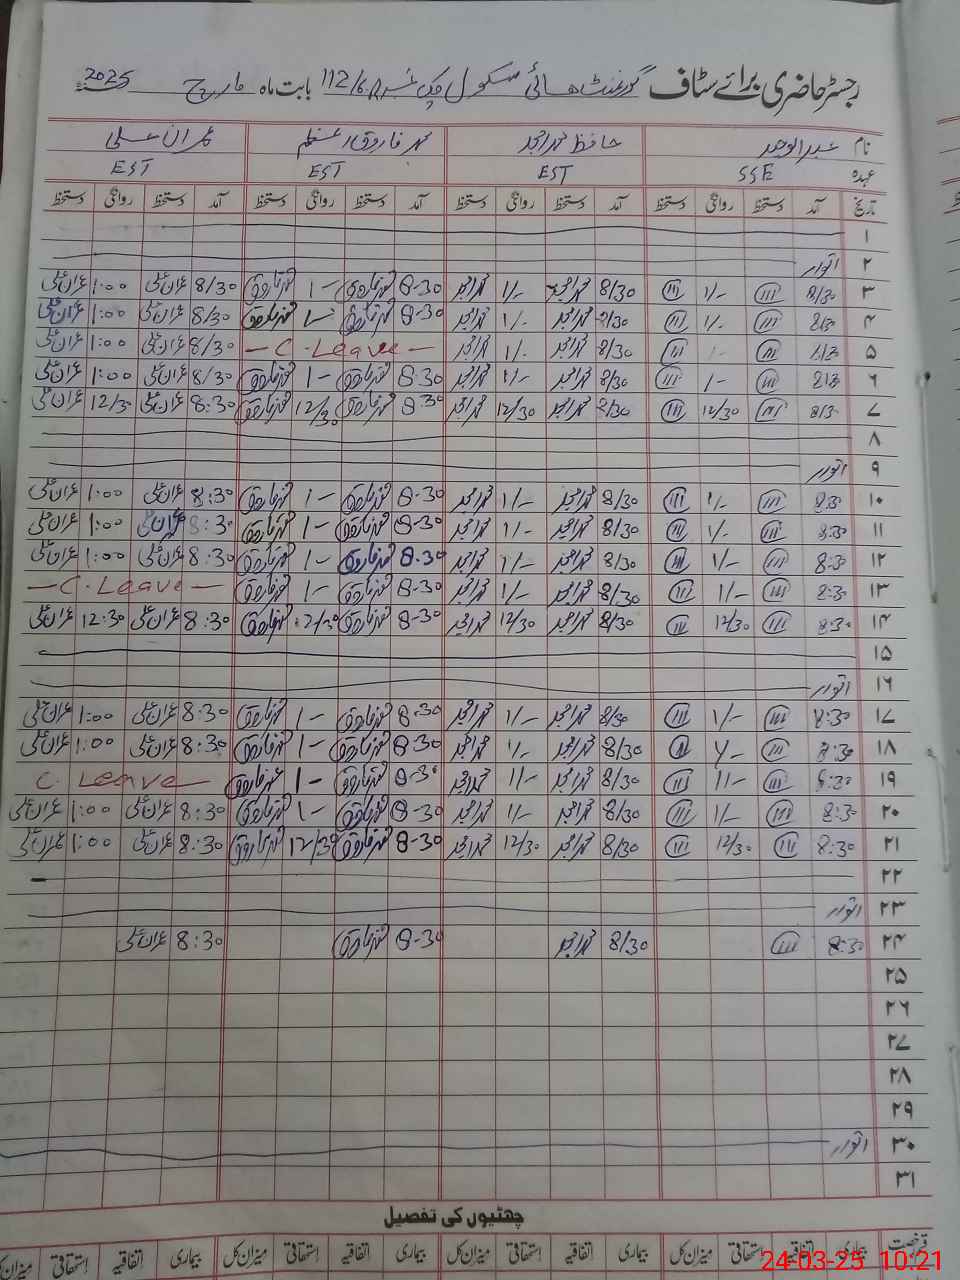 رجسٹر حاضری برائے سٹاف گورنمنٹ ھائی سکول چک نمبر 112/6R بابت ماہ مارچ 2025
نام عبدالوحید حافظ محمد امجد محمد فاروق اعظم عمران علی
عہدہ SSE EST EST EST
تاریخ آمد دستخط روانگی دستخط آمد دستخط روانگی دستخط آمد دستخط روانگی دستخط آمد دستخط روانگی دستخط
۱
۲ اتوار
۳ 8/30 1/- 8/30 محمد امجد 1/- محمد امجد 8-30 محمد فاروق 1- محمد فاروق 8/30 عمران علی 1:00 عمران علی
۴ 830 1/- 8/30 محمد امجد 1/- محمد امجد 8-30 محمد فاروق 1- محمد فاروق 8/30 عمران علی 1:00 عمران علی
۵ 8/30 محمد امجد 1/- محمد امجد - C. Leave - 8/30 عمران علی 1:00 عمران علی
۶ 1- 8/30 محمد امجد 1/- محمد امجد 8.30 محمد فاروق 1- محمد فاروق 8/30 عمران علی 1:00 عمران علی
۷ 12/30 8/30 محمد امجد 12/30 محمد امجد 8.30 محمد فاروق 12/30 محمد فاروق 8:30 عمران علی 12/30 عمران علی
۸
۹ اتوار
۱۰ 8:30 1/- 8/30 محمد امجد 1/- محمد امجد 8-30 محمد فاروق 1- محمد فاروق 8:30 عمران علی 1:00 عمران علی
۱۱ 8:30 1/- 8/30 محمد امجد 1/- محمد امجد 8-30 محمد فاروق 1- محمد فاروق 8:30 عمران علی 1:00 عمران علی
۱۲ 8:30 1/- 8/30 محمد امجد 1/- محمد امجد 8.30 محمد فاروق 1- محمد فاروق 8:30 عمران علی 1:00 عمران علی
۱۳ 8:30 1/- 8/30 محمد امجد 1/- محمد امجد 8-30 محمد فاروق 1- محمد فاروق - C. Leave -
۱۴ 8:30 12/30 8/30 محمد امجد 12/30 محمد امجد 8-30 محمد فاروق 12/30 محمد فاروق 8:30 عمران علی 12:30 عمران علی
۱۵
۱۶ اتوار
۱۷ 8:30 1/- 8/30 محمد امجد 1/- محمد امجد 8-30 محمد فاروق 1- محمد فاروق 8:30 عمران علی 1:00 عمران علی
۱۸ 8:30 8/30 محمد امجد 1/- محمد امجد 8-30 محمد فاروق 1- محمد فاروق 8:30 عمران علی 1:00 عمران علی
۱۹ 8:30 1/- 8/30 محمد امجد 1/- محمد امجد 8-30 محمد فاروق 1- محمد فاروق C. Leave -
۲۰ 8:30 1/- 8/30 محمد امجد 1/- محمد امجد 8-30 محمد فاروق 1- محمد فاروق 8:30 عمران علی 1:00 عمران علی
۲۱ 8:30 12/30 8/30 محمد امجد 12/30 محمد امجد 8-30 محمد فاروق 12/30 محمد فاروق 8:30 عمران علی 1:00 عمران علی
۲۲
۲۳ اتوار
۲۴ 8:30 8/30 محمد امجد 8-30 محمد فاروق 8:30 عمران علی
۲۵
۲۶
۲۷
۲۸
۲۹
۳۰ اتوار
۳۱
چھٹیوں کی تفصیل
رخصت بیماری اتفاقیہ استحقاقی میزان کل بیماری اتفاقیہ استحقاقی میزان کل بیماری اتفاقیہ استحقاقی میزان کل بیماری اتفاقیہ استحقاقی
24-03-25 10:21